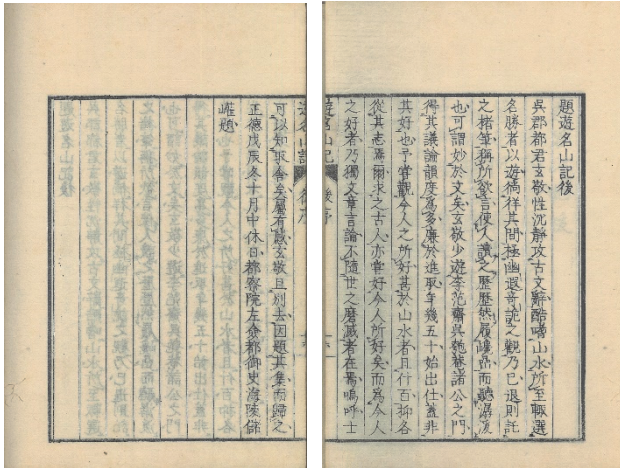 題遊名山記後
吳郡都君玄敬性沉靜攻古文辭酷嗜山水所至輒選
名勝者以遊徜徉其間極幽遐奇詭之觀乃已退則託
之楮筆稱所欲言使人讀之歷歷然履巉嵒而聽潺湲
也可謂妙於文矣玄敬少遊李范齋吳匏菴諸公之門
得其議論韻度為多廉於進取年幾五十始出仕蓋非
其好也予嘗觀今人之所好甚於山水者且什百抑各
從其志焉爾求之古人亦嘗好今人所好矣而為今人
之好者乃獨文章言論不隨世之磨滅者在焉嗚呼士
遊名山記 後序
可以知取舍矣屬有蔵玄敬且別去因題其集而歸之
正德戊辰冬十月中休日都察院左僉都御史海陵儲
巏題